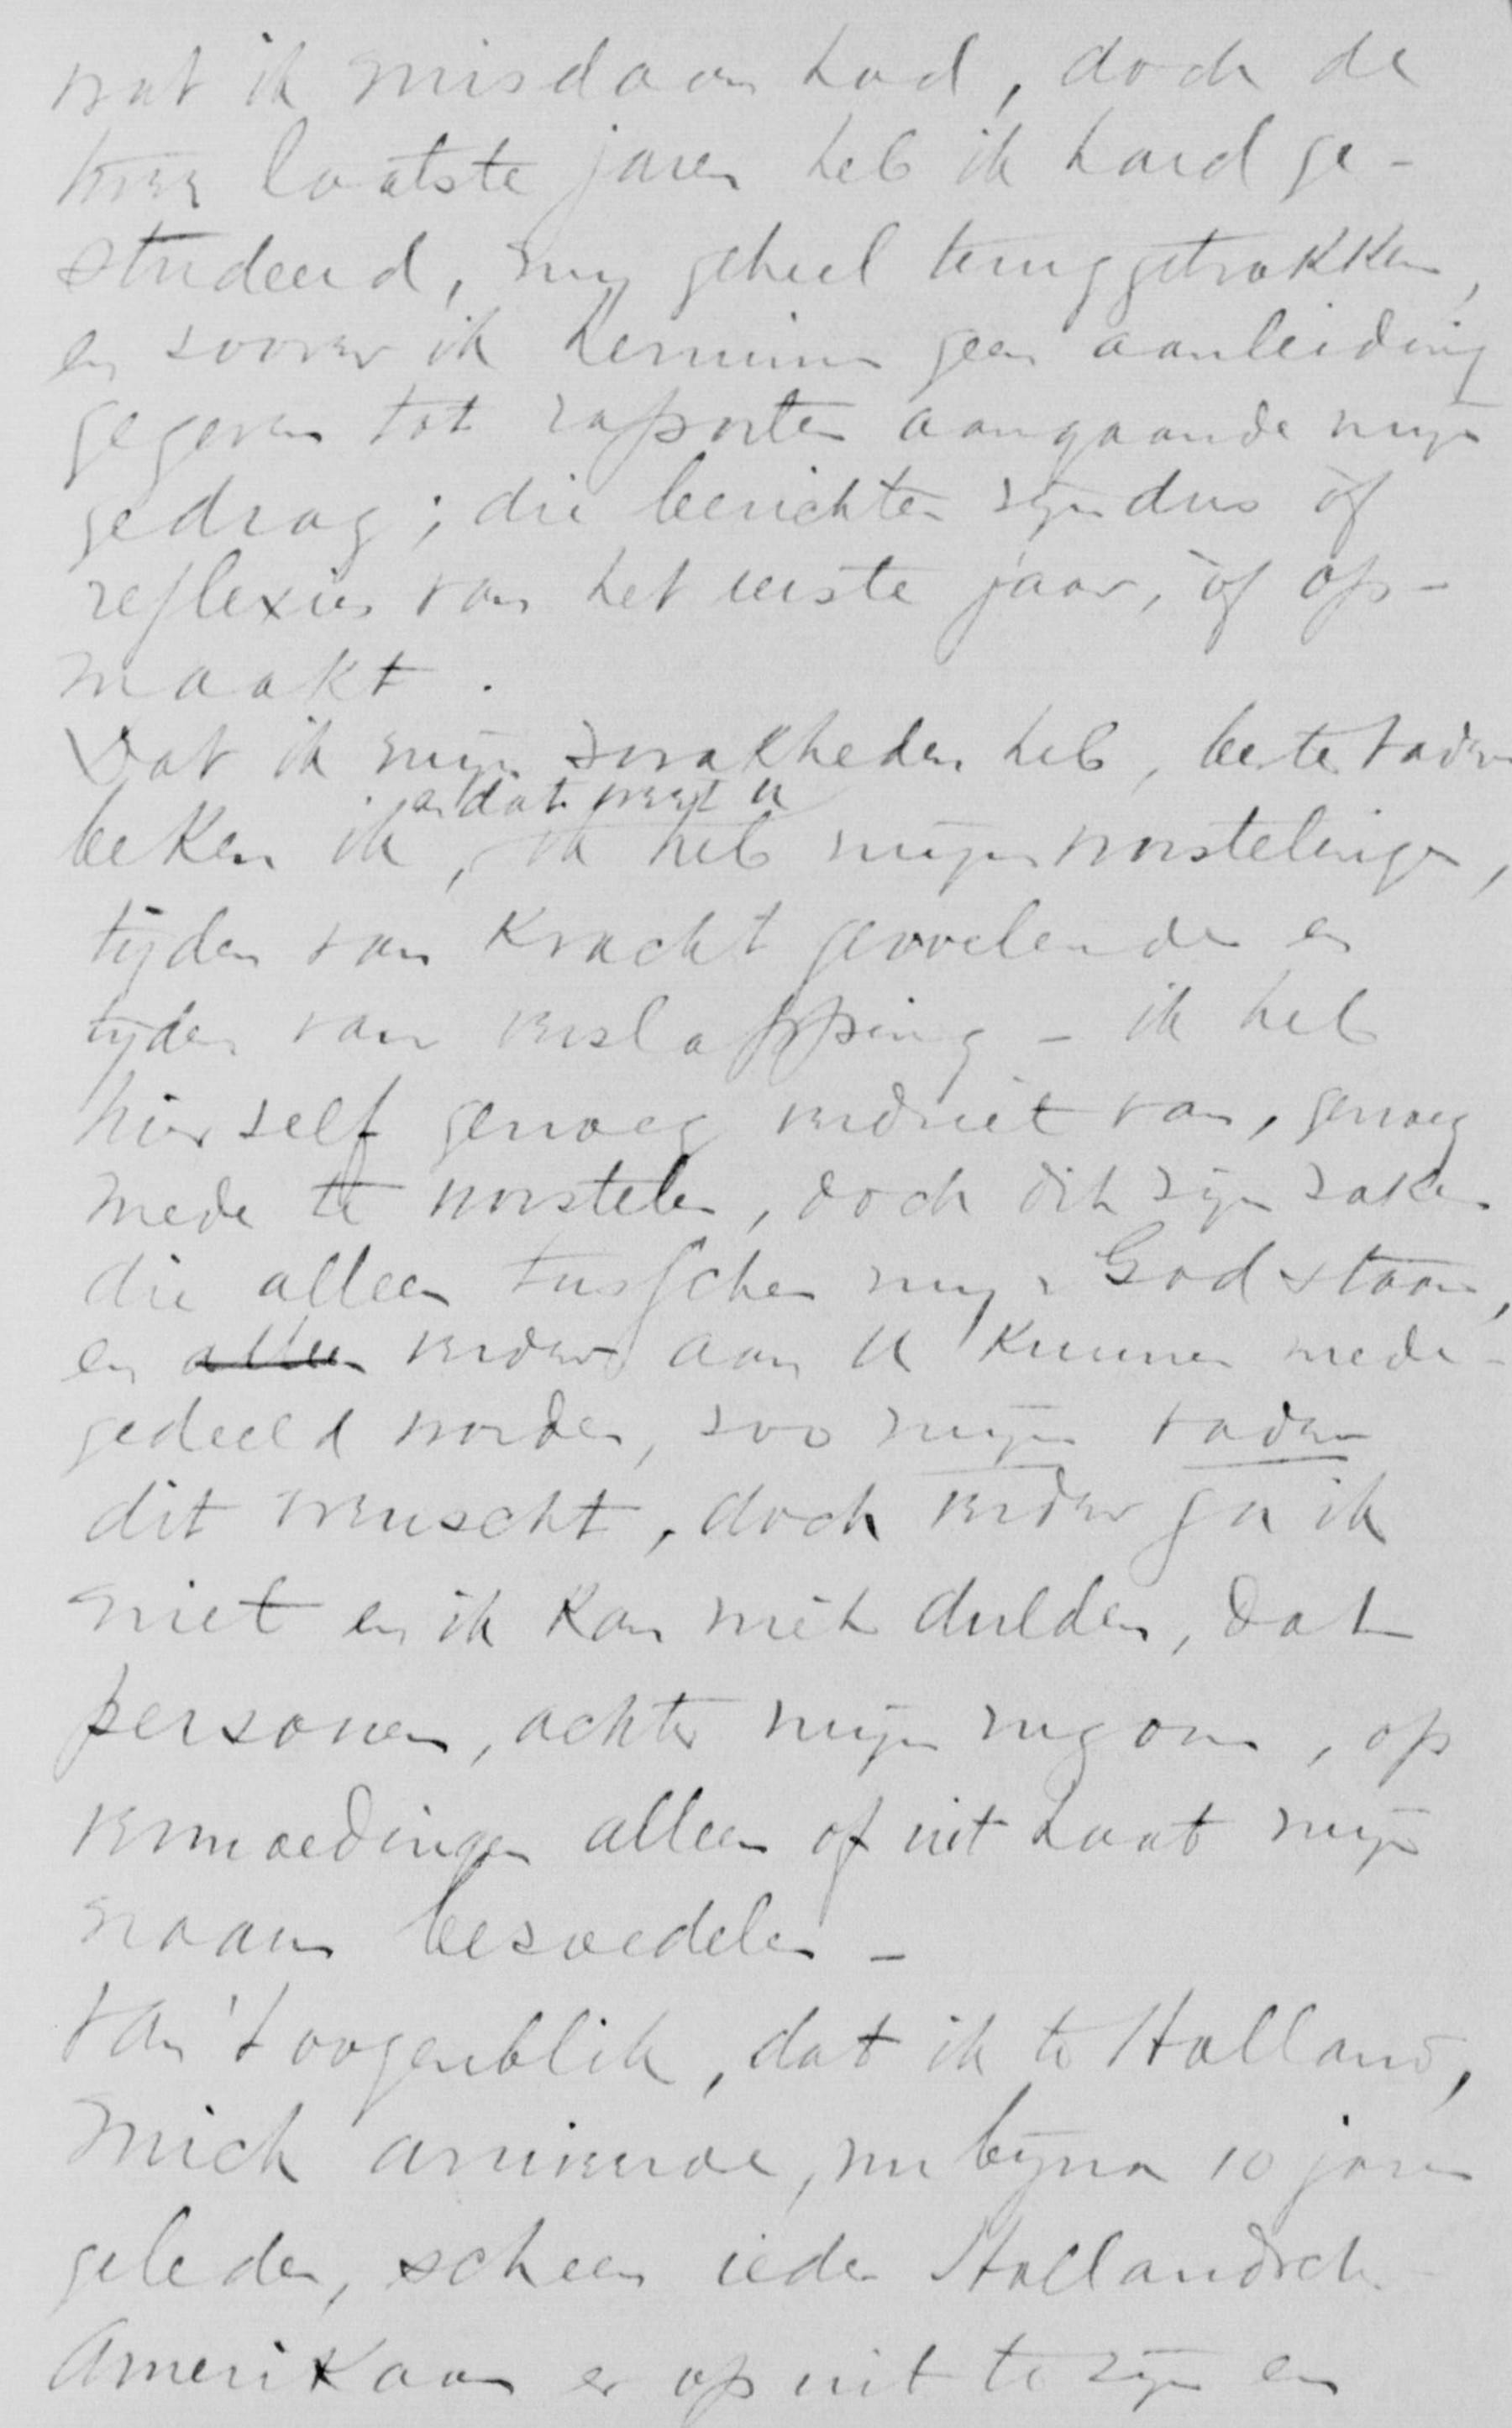 wat ik misdaan had, doch de
twee laatste jaren heb ik hard ge-
studeerd, my geheel teruggetrokken,
en zoover ik herinner geen aanleiding
gegeven tot raporten aangaande mijn
gedrag; die berichten zijn dus òf
reflexies van het eerste jaar, òf op-
maakt.
Dat ik mijn zwakheden heb, beste vader
en dat weet u
beken ik, ik heb mijne worstelingen,
tijden van kracht gevoelende en
tijden van verslapping - ik heb
hier zelf genoeg verdriet van, genoeg
mede te worstelen, doch dit zijn zaken
die alleen tusschen my & God staan,
en alleen verder aan U kunnen mede-
gedeeld worden, zoo mijn vader
dit wenscht, doch verder ga ik
niet en ik kan niet dulden, dat
personen, achter mijn rug om, op
vermoedingen alleen of uit haat mijn
naam bezoedelen -
Van 't oogenblik, dat ik te Holland,
Mich arriveerde, nu bijna 10 jaren
geleden, scheen ieder Hollandsch-
Amerikaan er op uit te zijn en